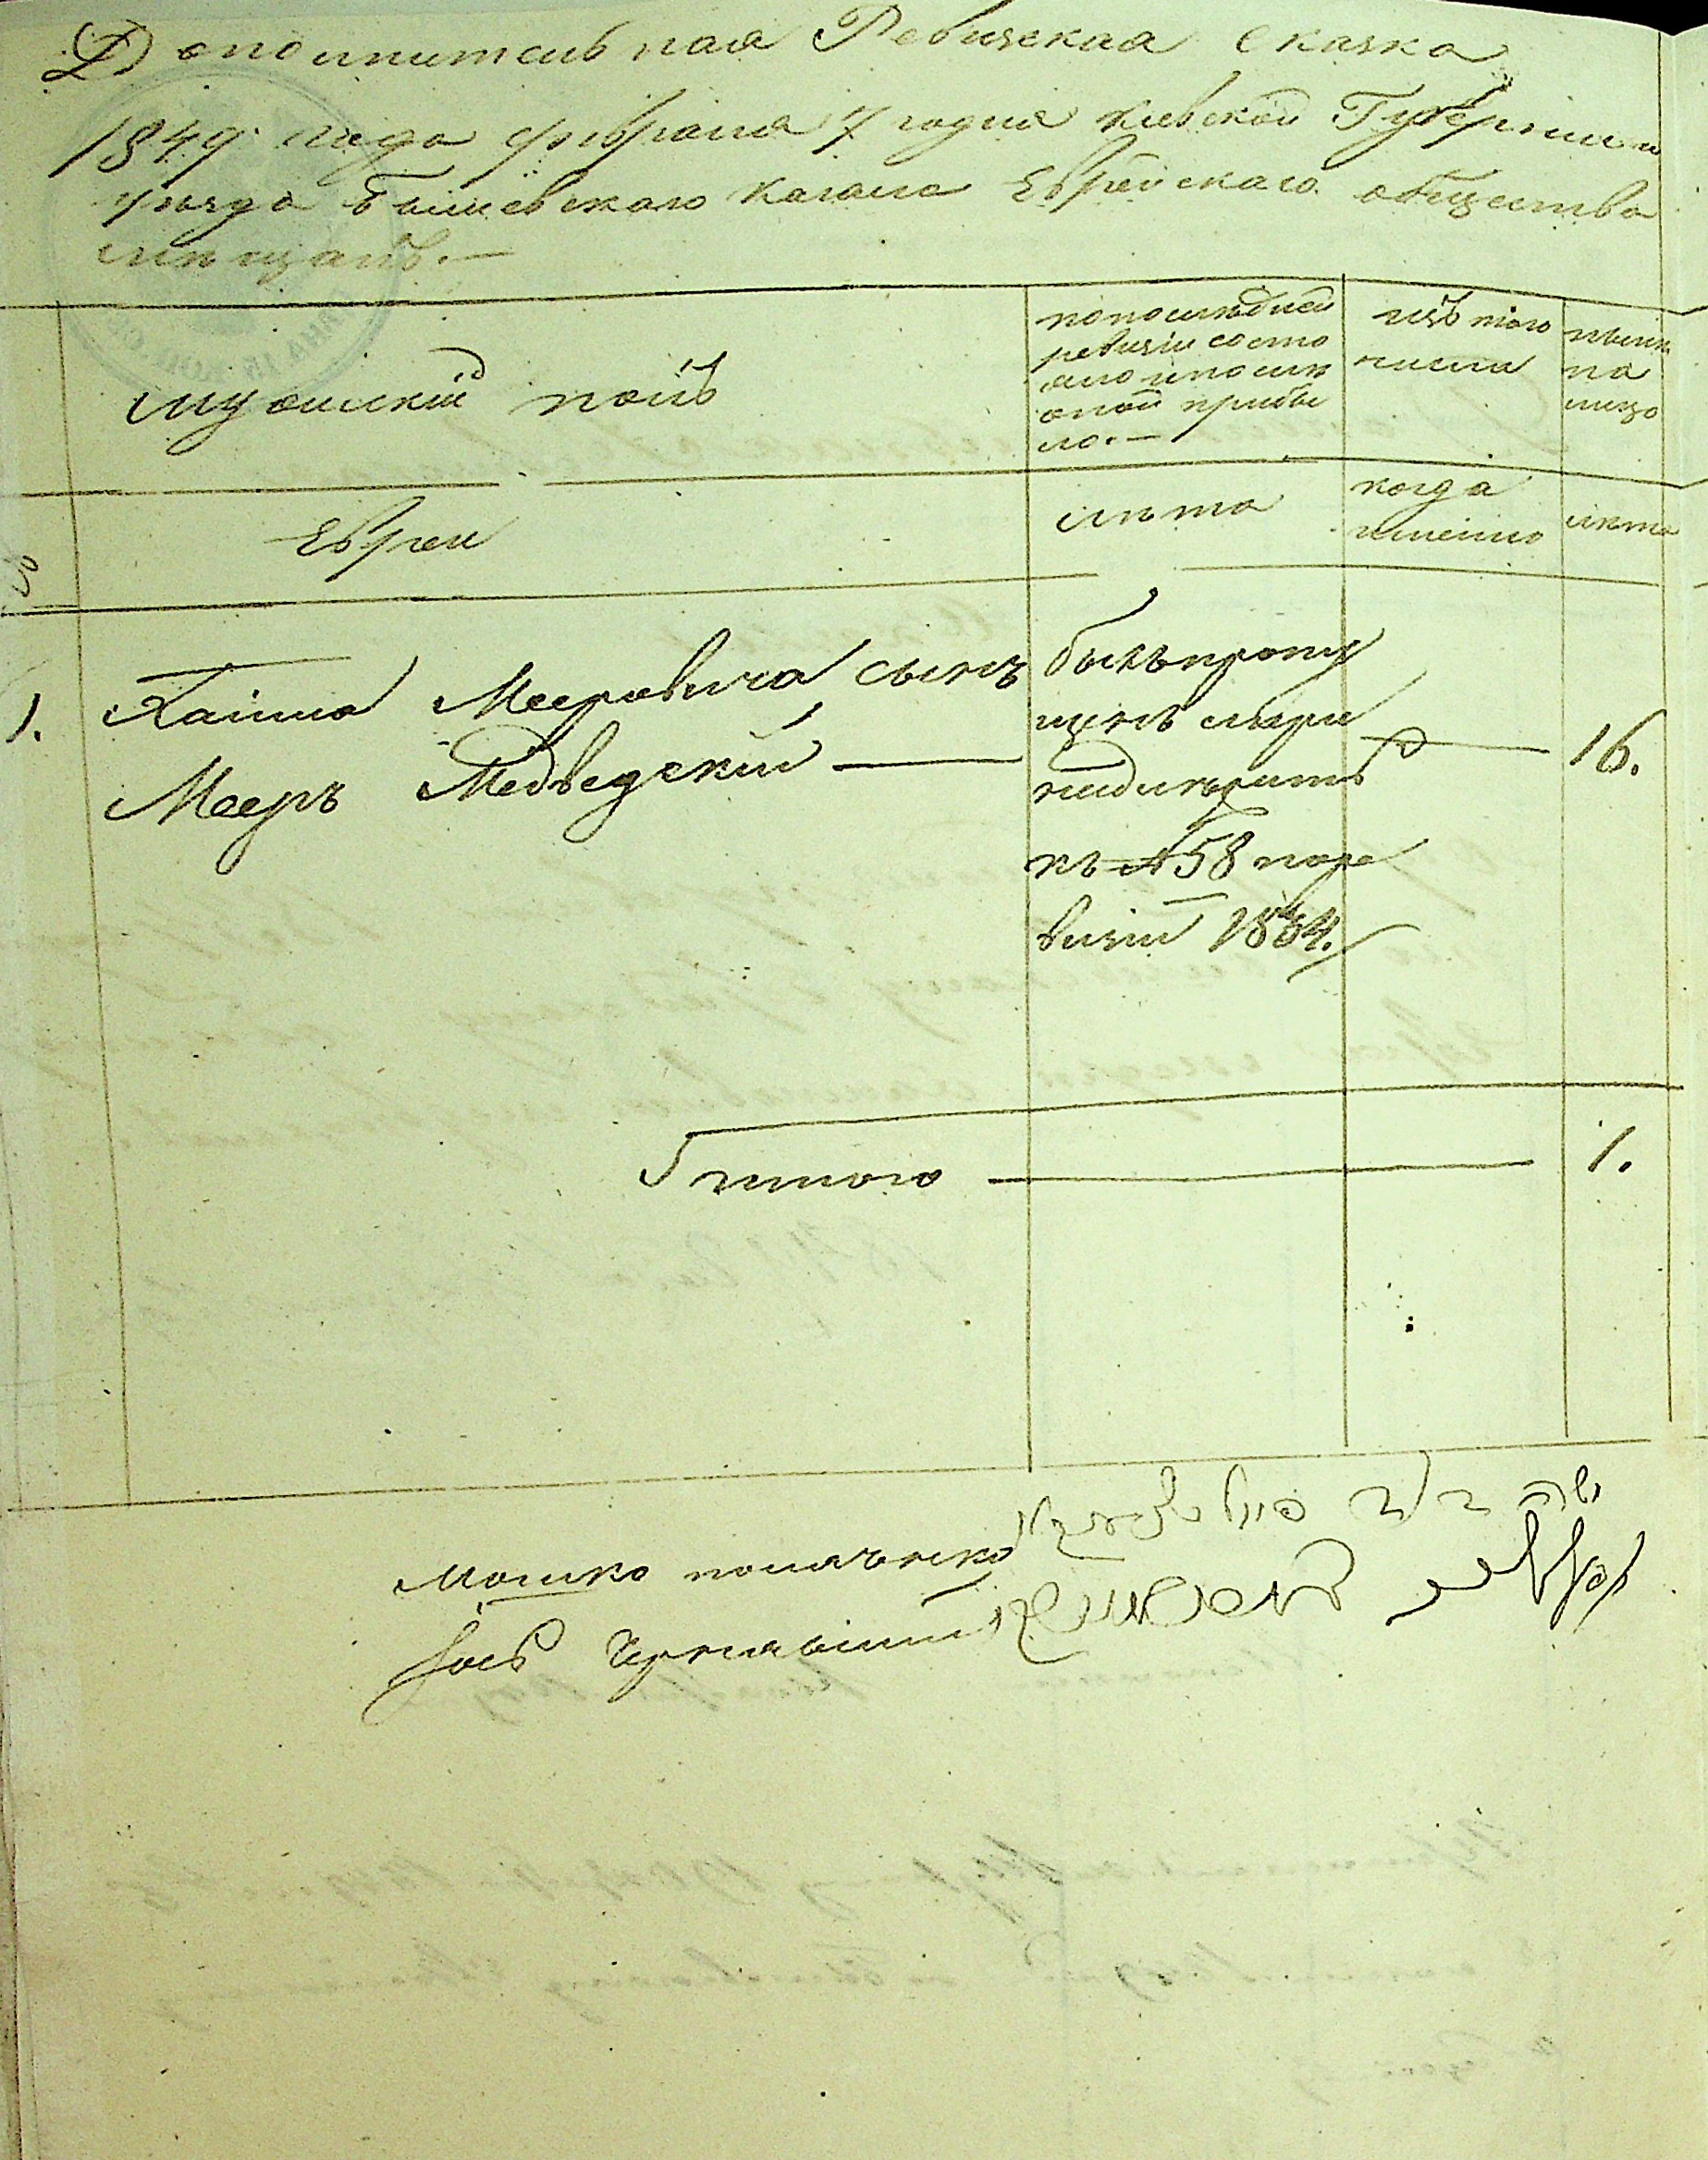 Дополнительная Ревизская Сказка
1849 года февраля 7 го дня Киевской Губернии и
уезда Бышевского Кагала Еврейскаго общества
мещанъ.—
мужескій полъ
по последней
ревизіи состо
яло и после
оной прибы
ло.—
изъ того
числа
ныне
на
лицо
Евреи
лета
когда
именно
лета
1. Хаима Мееровича сынъ
Мееръ Медведскій —
былъ пропу
щенъ
къ № 58 по ре
визіи 1834.
16.
итого — 1.
Мошко
Іось Чернявскій